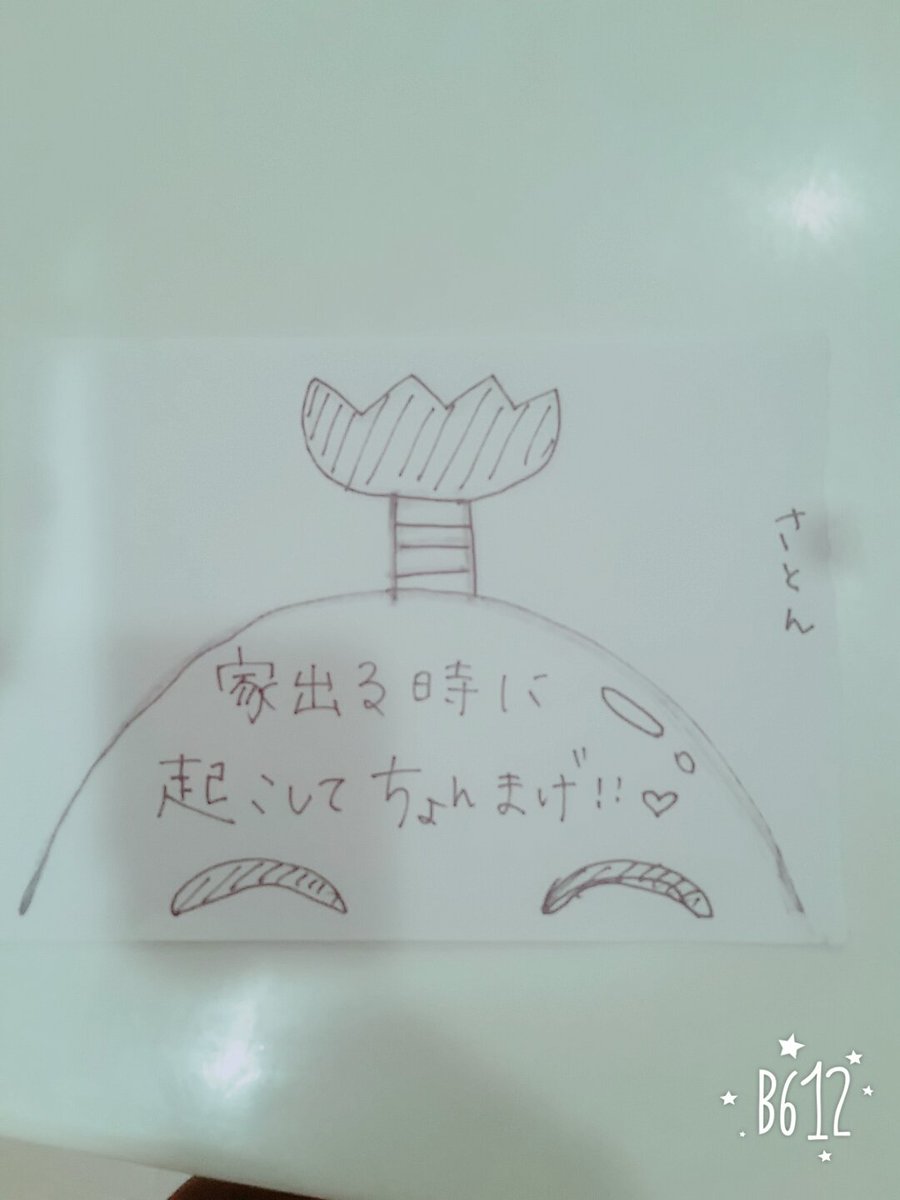 さとん
家出る時に
起こしてちょんまげ!!♡
B612